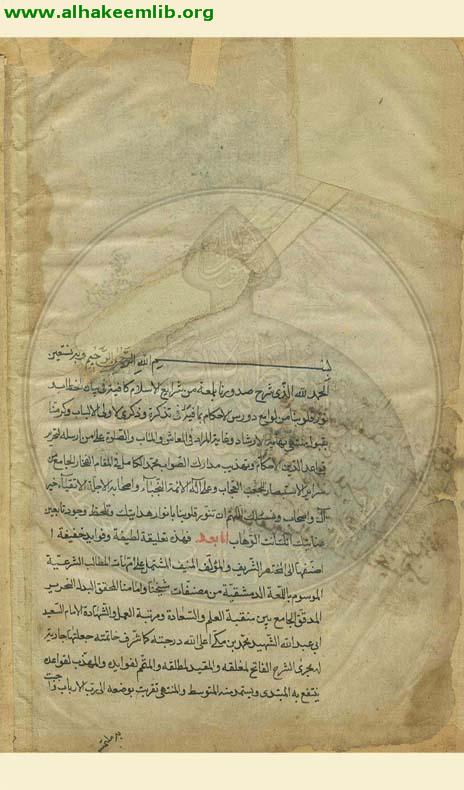 www.alhakeemlib.org
بسم الله الرحمن الرحيم وبه نستعين
الحمد لله الذى شرح صدورنا بلمعة من شرايع الاسلام كافية فى بيان الخطاب
نور قلوبنا من لوامع دروس الاحكام بما فيه تذكرة وذكرى لاولى الالباب وكرمنا
بقبول منتهى نهاية الارشاد وغاية المراد فى المعاش والماب والصلوة على من ارسله لتحرير
قواعد الدين وتهذيب مدارك الصواب محمد الكامل فى المقام الفخار الجامع من
سراير الاستبصار العجاب وعلى اله الائمة النجباء واصحابه الاجلة الاتقياء خير
ال واصحاب ونسئلك اللهم ان تنور قلوبنا بانوار هدايتك وتلحظ وجودنا بعين
عنايتك انك انت الوهاب اما بعد فهذه تعليقة لطيفة وفوايد خفيفة
اضفتها الى المختصر الشريف والمؤلف المنيف المشتمل على امهات المطالب الشرعية
الموسوم باللمعة الدمشقية من مصنفات شيخنا وامامنا المحقق البدل النحرير
المدقق الجامع بين منقبة العلم والسعادة ومرتبة العمل والشهادة الامام السعيد
ابى عبد الله الشهيد محمد بن مكى اعلى الله درجته كما شرف خاتمته جعلتها جارية
له مجرى الشرح الفاتح لمغلقه والمقيد لمطلقه والمتمم لفوايده والمهذب لقواعده
ينتفع به المبتدى ويستمد منه المتوسط والمنتهى تقربت بوضعه الى رب الارباب واجبت